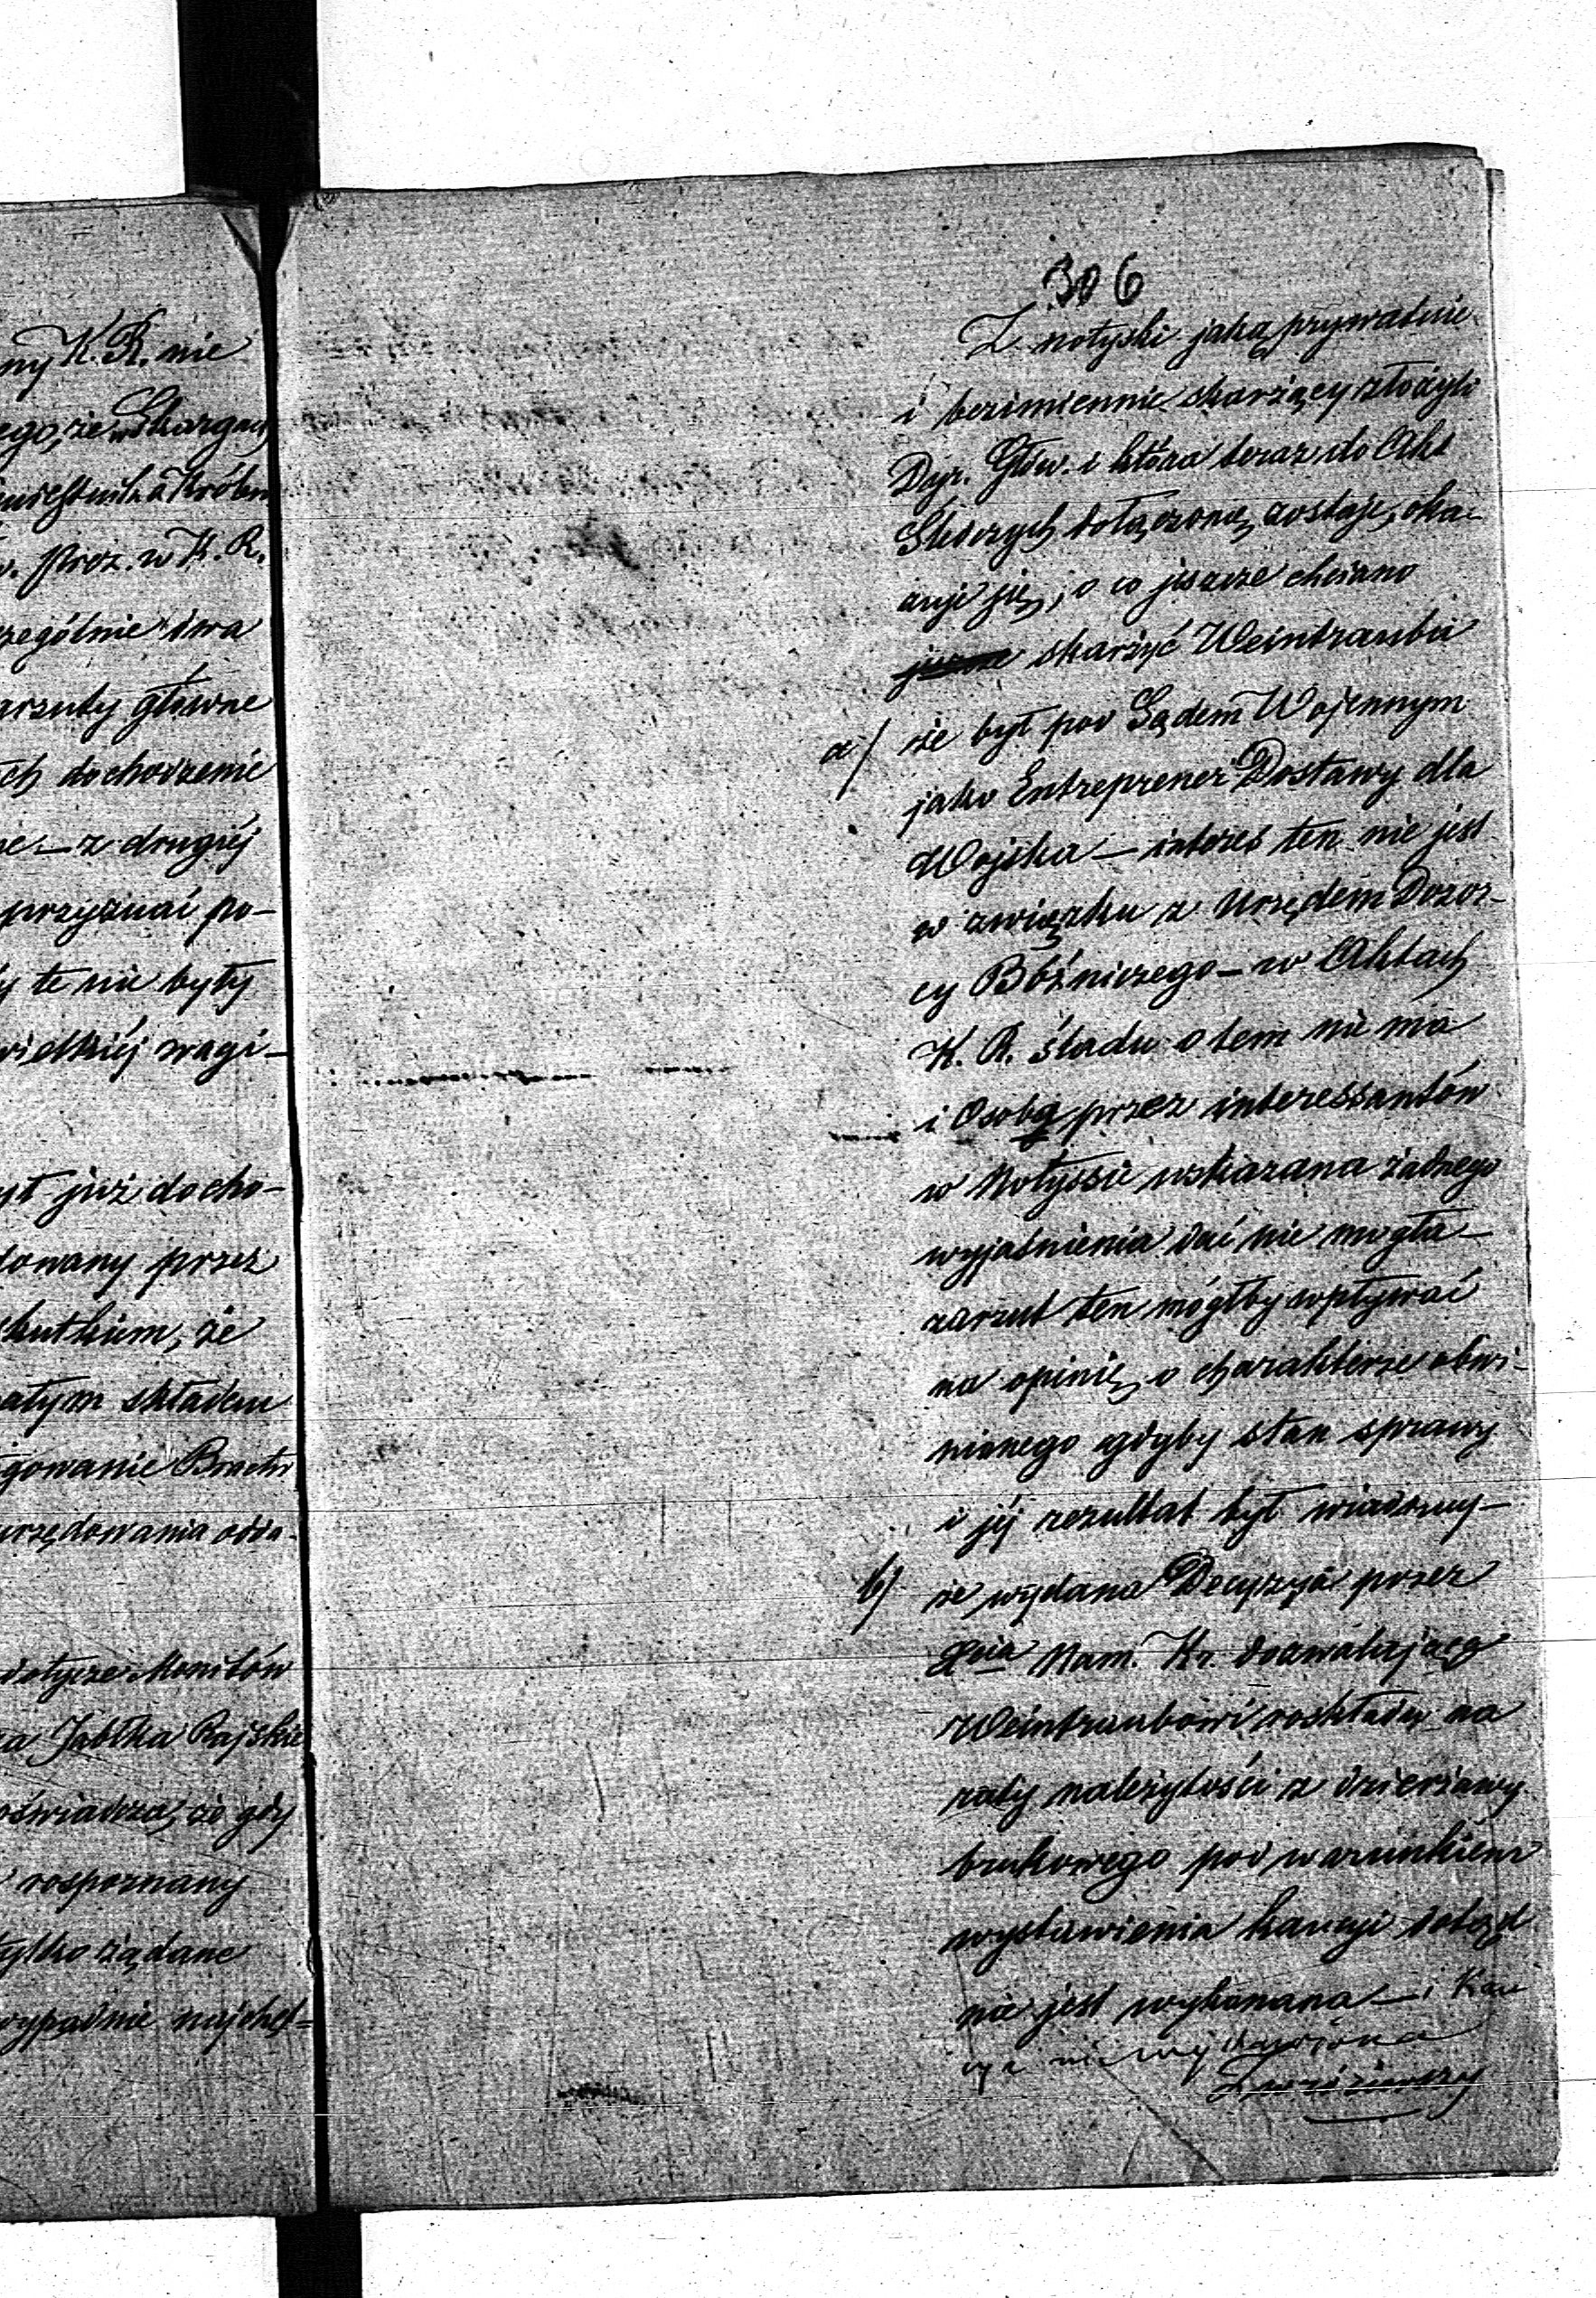 ny K. R. nie
ego, że w Skargach
. Proz. w K. R.
zególnie dwa
arzuty główne
ch dochodzenie
ie — z drugiéj
przyznać po-
y te nie były
wielkiéj wagi —
ył już docho-
dowany przez
skutkiem, że
ałym składem
gowanie Bractw
urzędowania odda-
dotycze Monitów
a Jabłka Rajskie
oświadcza, że gdy
rospoznany
tylko żądane
wypadnie najchęt=
306
Z notyski jaką prywatnie
i bezimiennie skarżący złożyli
Dyr. Głów. i która teraz do Akt
Skórzych dołączoną zostaje, oka-
zuje się, o co jeszcze chciano
jeszcze skarżyć Weintrauba
a/ że był pod Sądem Wojennym
jako Entreprener Dostawy dla
Wojska — interes ten nie jest
w związku z Urzędem Dozor-
cy Bóżniczego — w Aktach
K. R. śladu o tem nie ma
i Osoba przez interessantów
w Notyssie wskazana żadnego
wyjaśnienia dać nie mogła —
zarzut ten mógłby wpływać
na opinię o charakterze obwi-
nionego gdyby stan sprawy
i jéj rezultat był wiadomy —
b/ że wydana Decyzyja przez
Xcia Nam. Kr. dozwalająca
Weintraubowi roskładu na
raty należytości z dzierżawy
brukowego pod warunkiem
wystawienia kaucyi dotąd
nie jest wykonana — i Kau
cya nie wystawiona